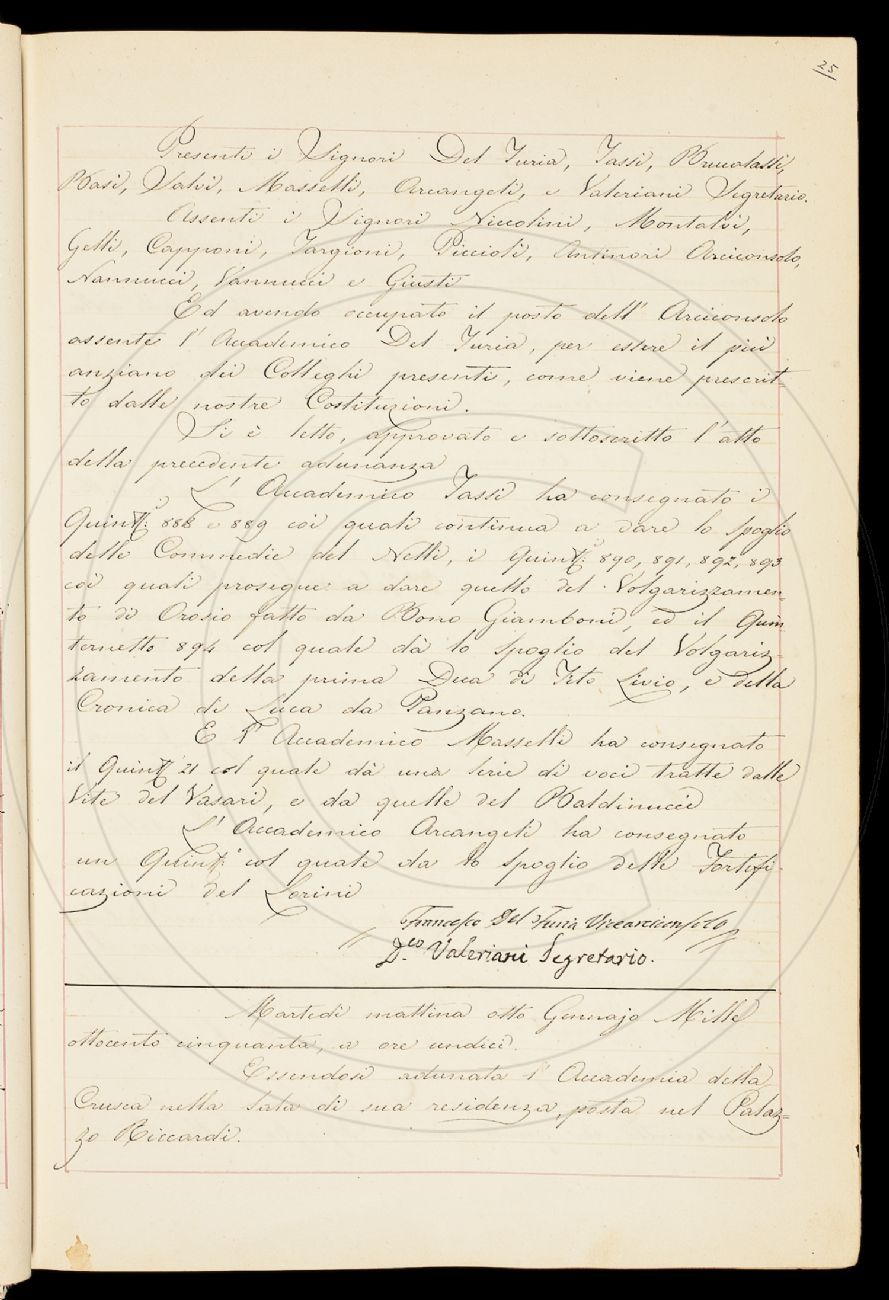 25
Presenti i Signori Del Furia, Tassi, Brucalassi,
Basi, Salvi, Masselli, Arcangeli, e Valeriani Segretario.
Assenti i Signori Niccolini, Montalvi,
Gelli, Capponi, Targioni, Piccioli, Antinori Arciconsolo,
Nannucci, Vannucci e Giusti
Ed avendo occupato il posto dell' Arciconsolo
assente l' Accademico Del Furia, per essere il più
anziano dei Colleghi presenti, come viene prescrit=
to dalle nostre Costituzioni.
Si è letto, approvato e sottoscritto l'atto
della precedente adunanza
L' Accademico Tassi ha consegnato i
Quint:i 888 e 889 coi quali continua a dare lo spoglio
delle Commedie del Nelli, i Quint:i 890, 891, 892, 893
coi quali prosegue a dare quello del Volgarizzamen=
to di Orosio fatto da Bono Giamboni, ed il Quin
ternetto 894 col quale dà lo spoglio del Volgariz=
zamento della prima Deca di Tito Livio, e della
Cronica di Luca da Panzano.
E l' Accademico Masselli ha consegnato
il Quint.° 21 col quale dà una serie di voci tratte dalle
Vite del Vasari, e da quelle del Baldinucci
L' Accademico Arcangeli ha consegnato
un Quint:° col quale da lo spoglio delle Fortifi=
cazioni del Lorini
Francesco Del Furia Vicearciconsolo
D.co Valeriani Segretario.
Martedì mattina otto Gennajo Mille
ottocento cinquanta, a ore undici.
Essendosi adunata l' Accademia della
Crusca nella Sala di sua residenza, posta nel Palaz=
zo Riccardi.